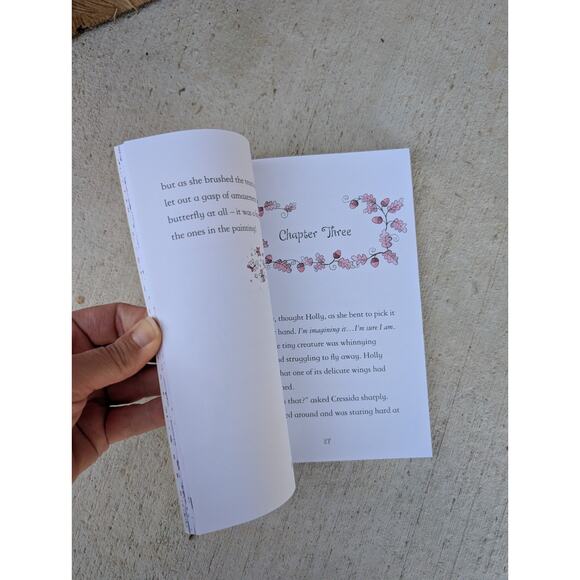 but as she brushed the
let out a gasp of amazement
butterfly at all – it was
the ones in the painting!
Chapter Three
thought Holly, as she bent to pick it
hand. I'm imagining it…I'm sure I am.
tiny creature was whinnying
struggling to fly away. Holly
that one of its delicate wings had
that?" asked Cressida sharply.
around and was staring hard at
27